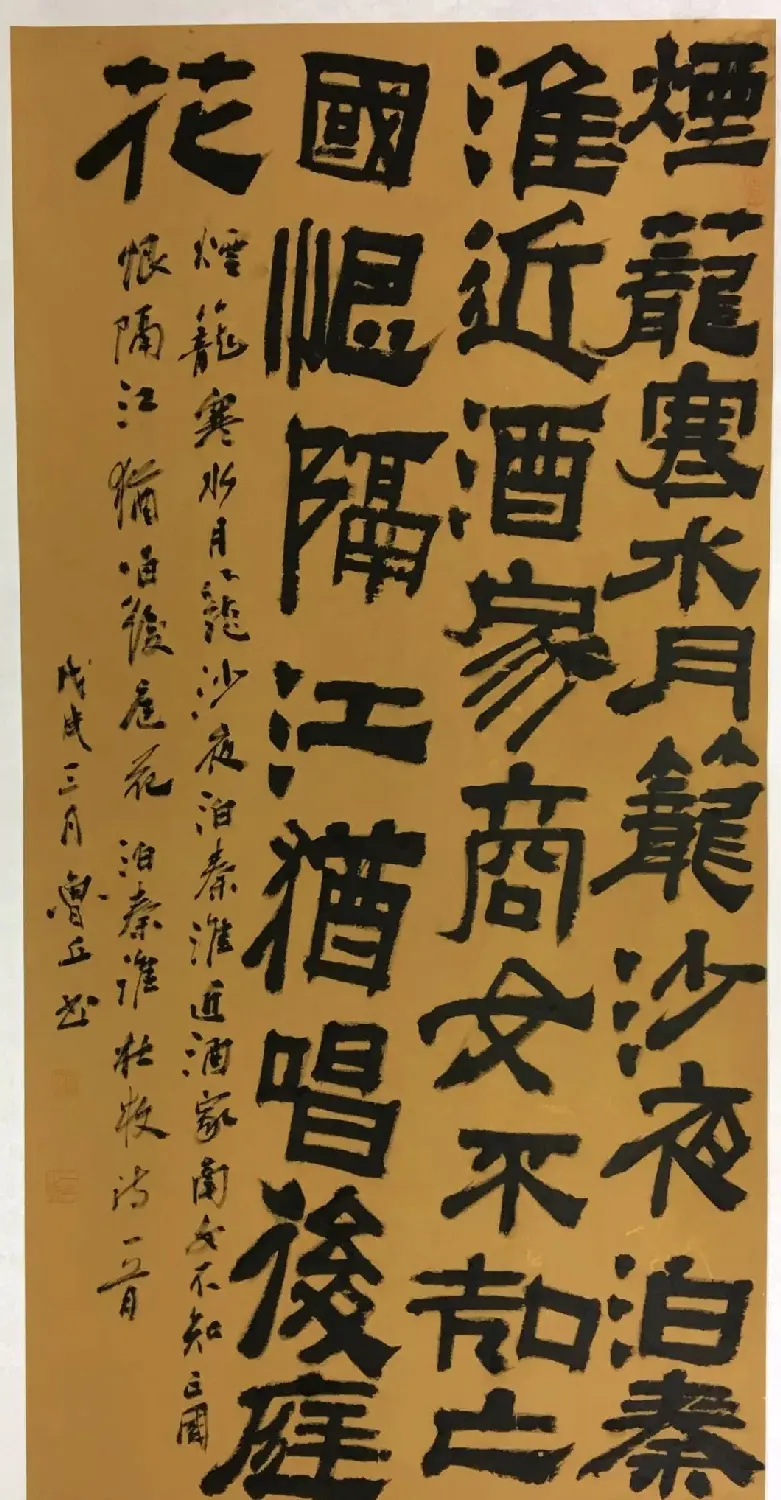 煙蘢寒水月籠沙夜泊秦
淮近酒家商女不知亡
國恨隔江猶唱後庭
花
煙籠寒水月籠沙夜泊秦淮近酒家商女不知亡國
恨隔江猶唱後庭花 泊秦淮杜牧詩一首
戊戌三月魯丘书